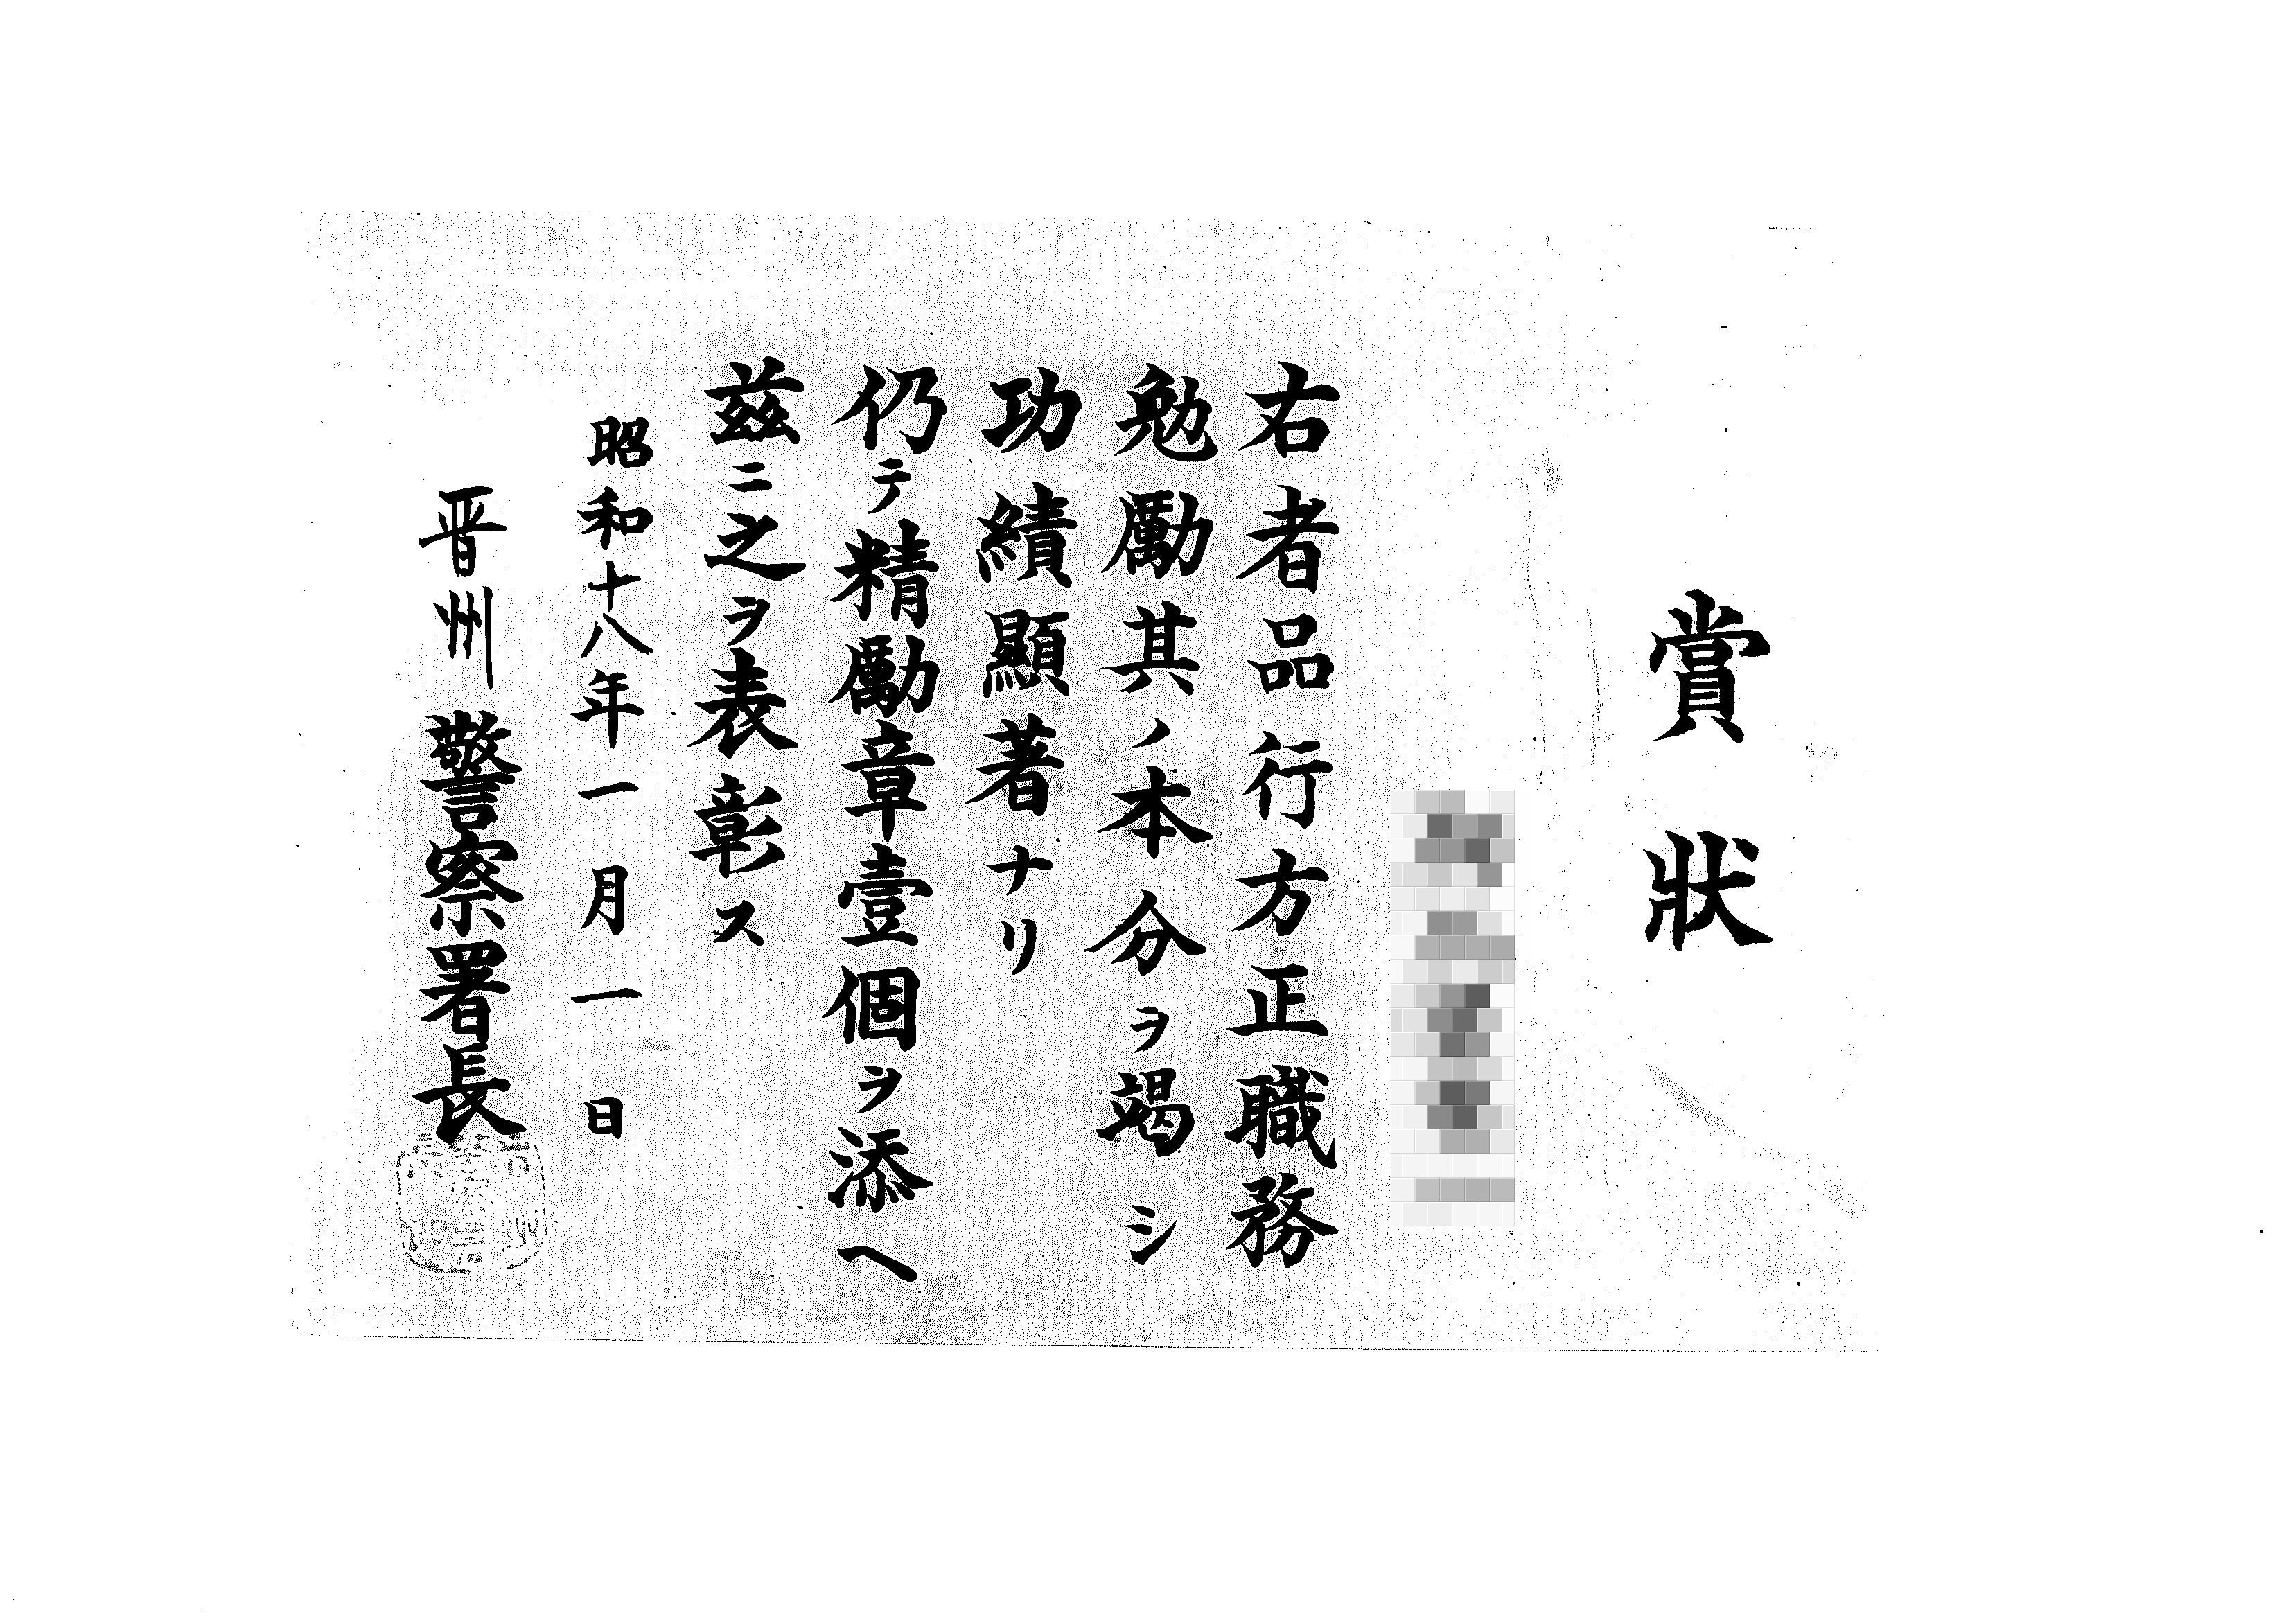 賞狀
右者品行方正職務
勉勵其ノ本分ヲ竭シ
功績顯著ナリ
仍テ精勵章壹個ヲ添ヘ
茲ニ之ヲ表彰ス
昭和十八年一月一日
晋州警察署長